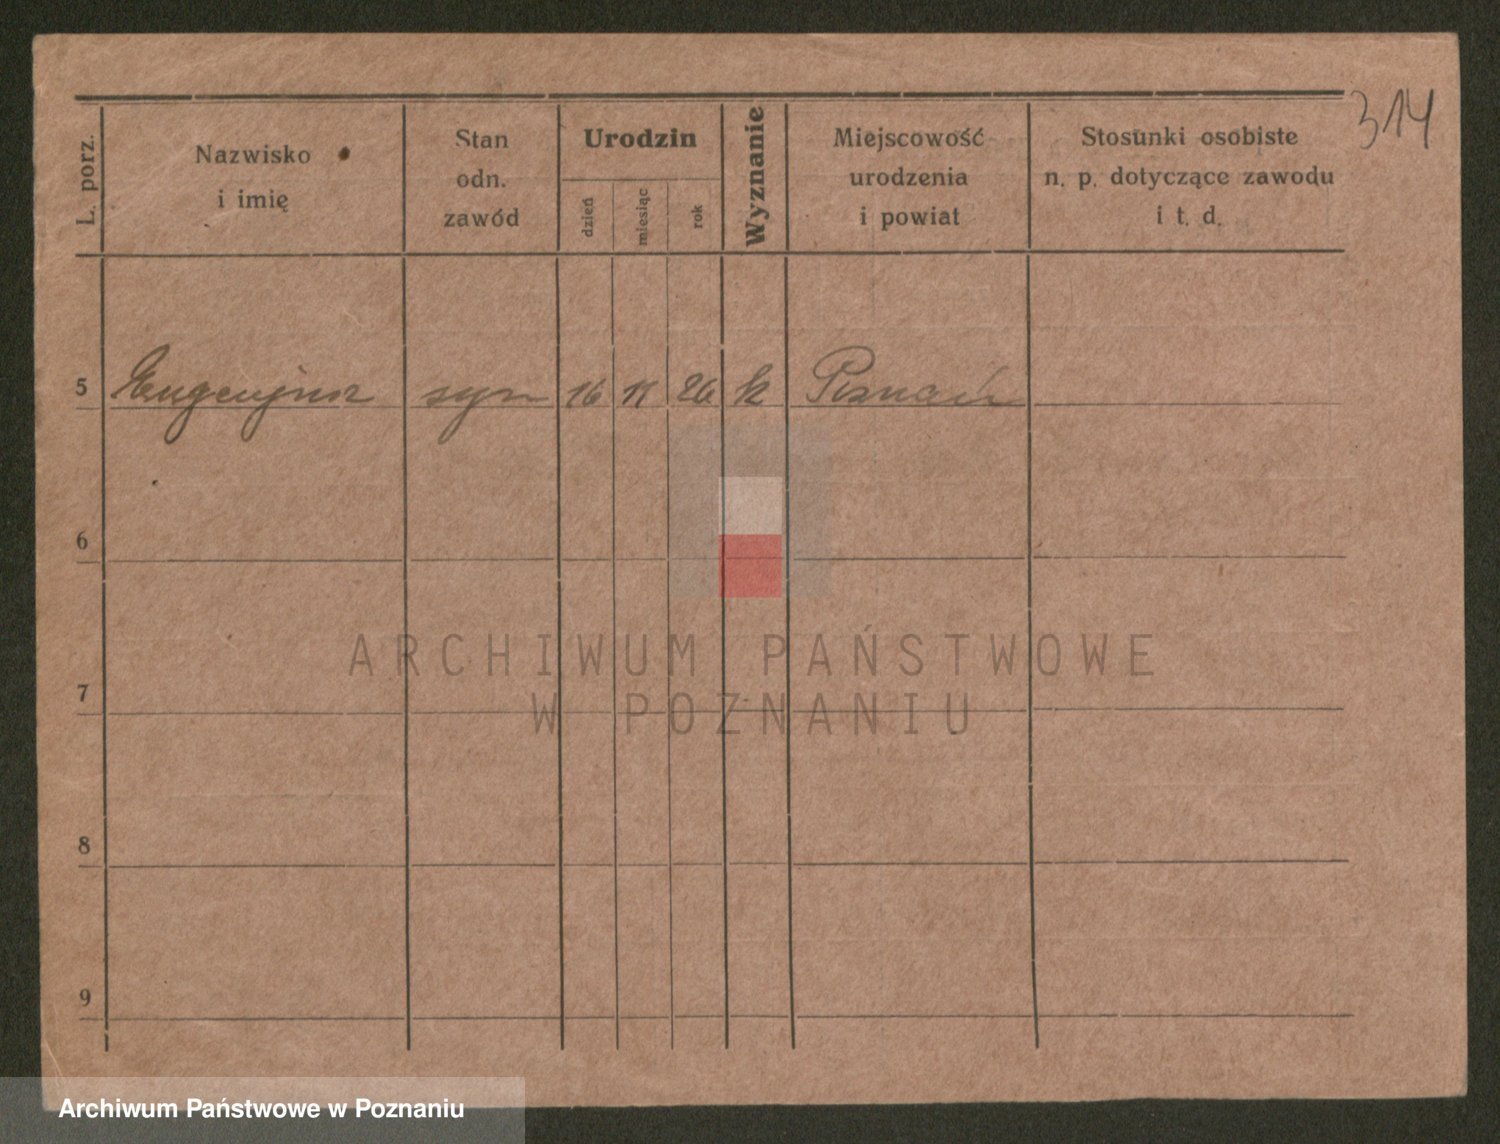 314
L. porz.
Nazwisko
i imię
Stan
odn.
zawód
Urodzin
dzień
miesiąc
rok
Wyznanie
Miejscowość
urodzenia
i powiat
Stosunki osobiste
n. p. dotyczące zawodu
i t. d.
5 Eugenjusz syn 16 11 26 k Poznań
6
7
8
9
ARCHIWUM PAŃSTWOWE
W POZNANIU
Archiwum Państwowe w Poznaniu